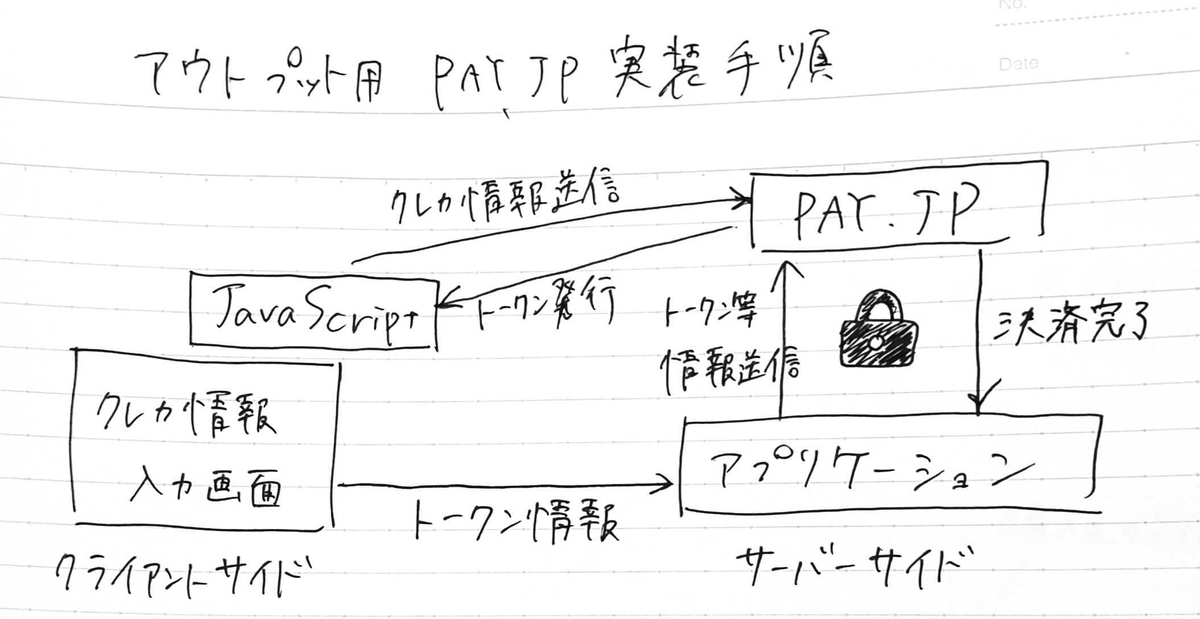 No.
Date
アウトプット用 PAY.JP 実装手順
クレカ情報送信
PAY.JP
JavaScript
トークン発行
トークン等
情報送信
決済完了
クレカ情報
入力画面
アプリケーション
トークン情報
クライアントサイド
サーバーサイド